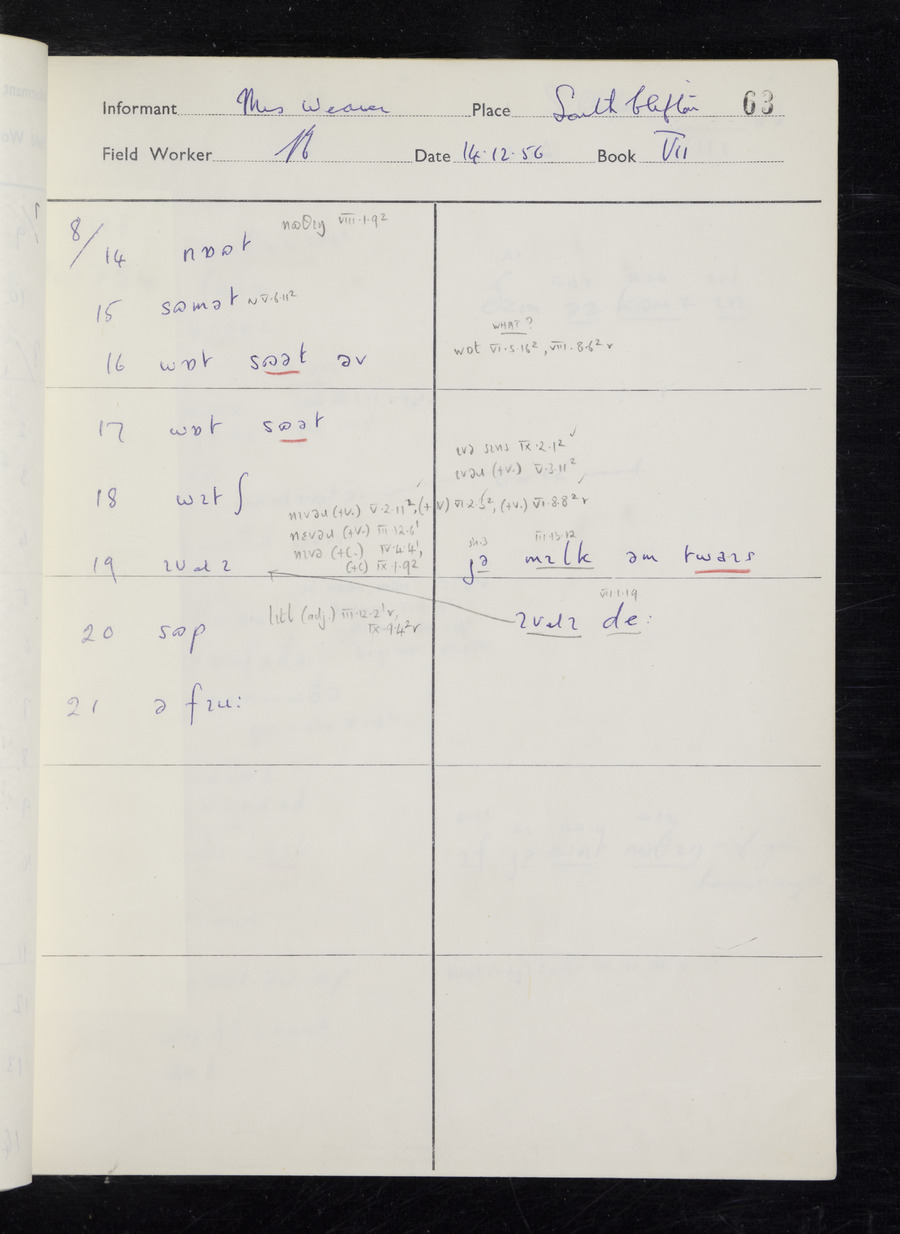 Informant Mrs Weaver Place South Clifton 63
Field Worker Date 14.12.56 Book VII
nəʊθɪŋ VIII.1.9²
8/14 nɒət
15 sʊmət V.6.11²
WHAT?
wot VI.5.16², VIII.8.6² r
16 wɒt sɒət əv
17 wɒt sɒət
ɪvə sɪns IX.2.1²
ɪvəɹ (+V.) V.3.11²
18 wɪtʃ
nɪvəɹ (+V.) V.2.11², (+V) VI.2.5², (+V.) VI.8.8² r
nɛvəɹ (+V.) III.12.6¹
nɪvə (+C.) IV.4.4¹,
(+C) IX.1.9²
19 ɪvəɹɪ
III.13.12
jə mɪlk əm twaɪs
VII.1.19
ɪvəɹɪ de:
lɪtl (adj.) III.12.2¹ r,
IX.9.4² r
20 sʊp
21 ə fɪu: